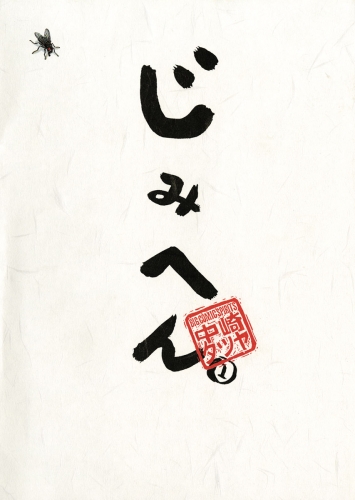 じみへん
BIG COMIC SPIRITS
中崎
タツヤ
1